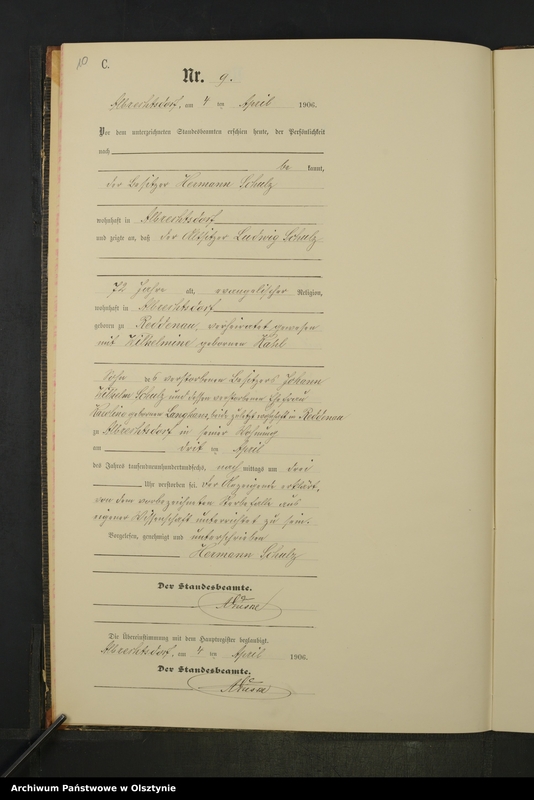 10
C.
Nr. 9.
Albrechtsdorf, am 4 ten April 1906.
Vor dem unterzeichneten Standesbeamten erschien heute, der Persönlichkeit
nach
be kannt,
der Besitzer Hermann Schulz
wohnhaft in Albrechtsdorf
und zeigte an, daß der Altsitzer Ludwig Schulz
72 Jahre alt, evangelischer Religion,
wohnhaft in Albrechtsdorf
geboren zu Reddenau, verheiratet gewesen
mit Wilhelmine geborenen
Sohn des verstorbenen Besitzers Johann
Wilhelm Schulz und dessen verstorbener Ehefrau
Karoline geborenen Langhans, beide zuletzt wohnhaft in Reddenau
zu Albrechtsdorf in seiner Wohnung
am drit ten April
des Jahres tausendneunhundertundsechs, nach mittags um drei
Uhr verstorben sei. Der Anzeigende erklärt,
von dem vorbezeichneten Sterbefalle aus
eigener Wissenschaft unterrichtet zu sein.
Vorgelesen, genehmigt und unterschrieben
Hermann Schulz
Der Standesbeamte.
Die Übereinstimmung mit dem Hauptregister beglaubigt.
Albrechtsdorf, am 4 ten April 1906.
Der Standesbeamte.
Archiwum Państwowe w Olsztynie